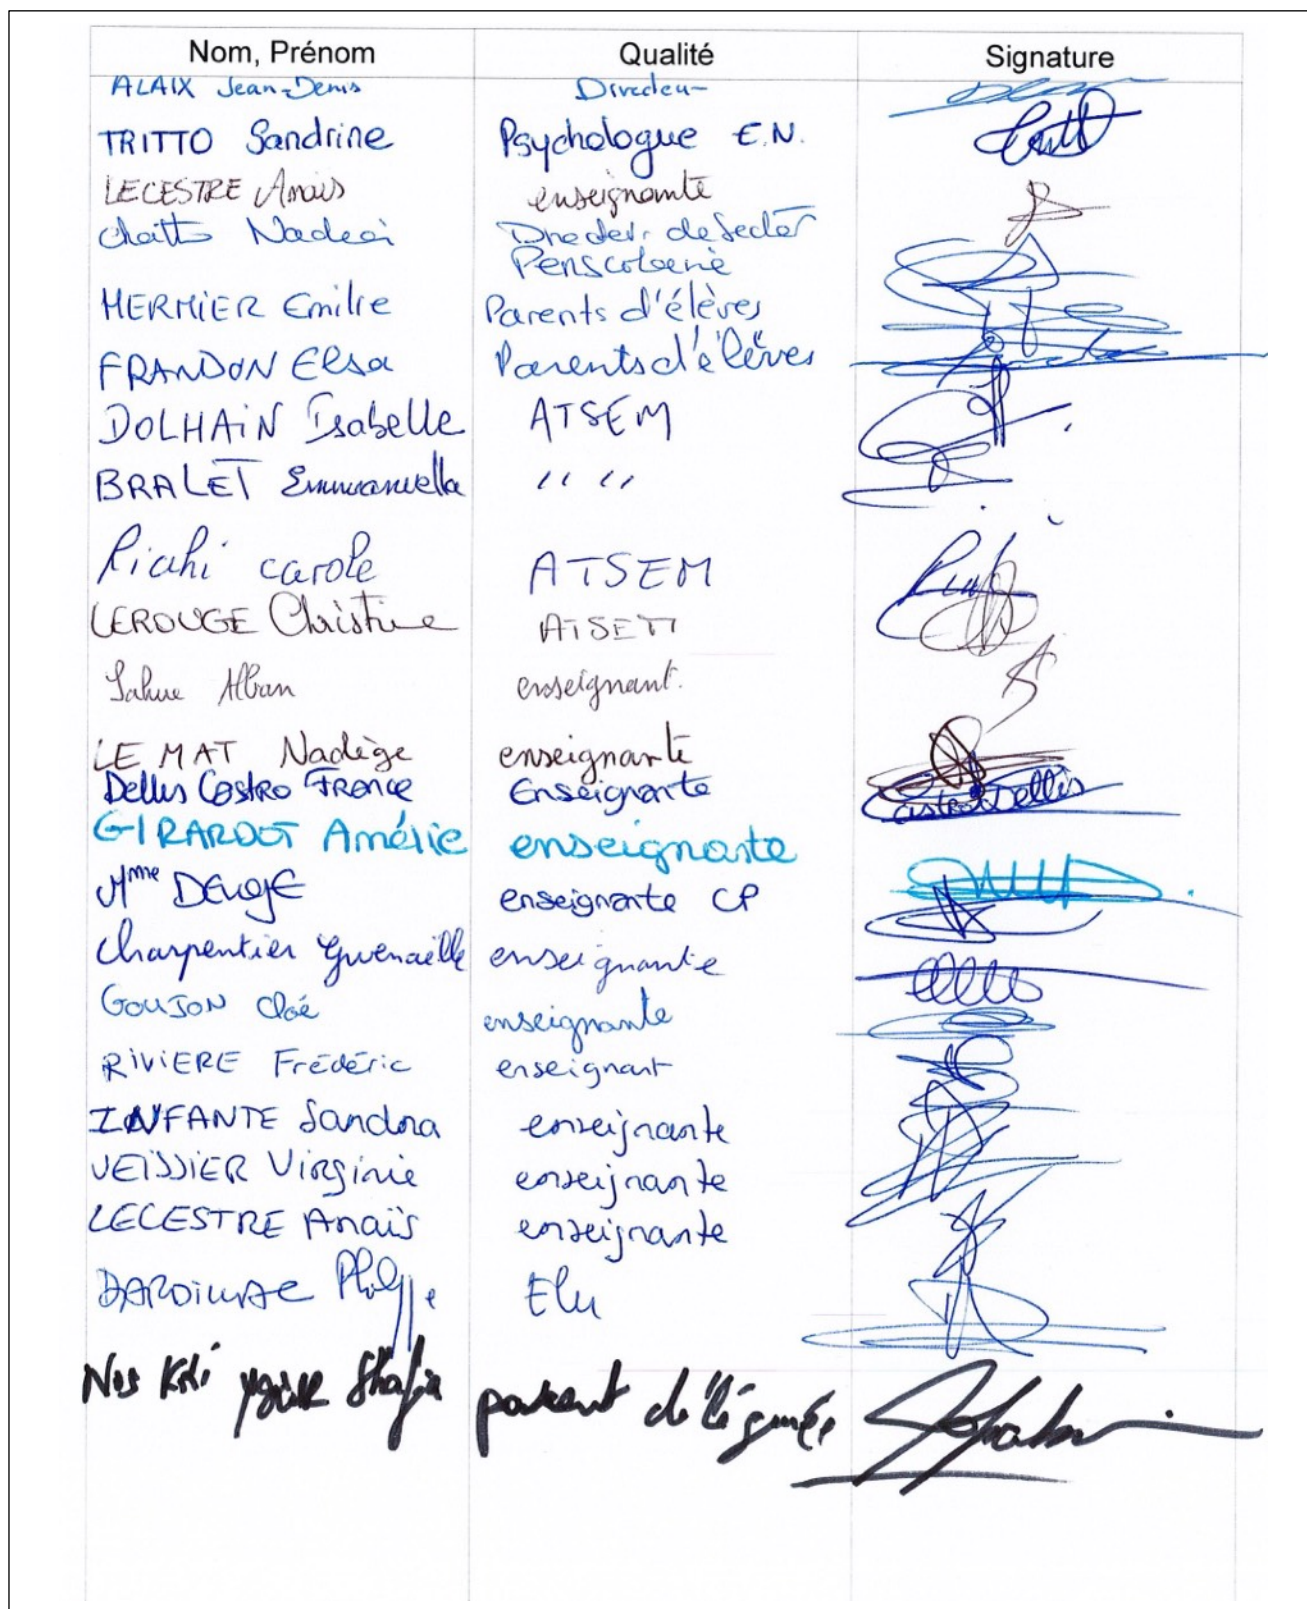 Nom, Prénom Qualité Signature
ALAIX Jean-Denis Directeur
TRITTO Sandrine Psychologue E.N.
LECESTRE Anais enseignante
Nadia
HERMIER Emilie Parents d'élèves
FRANDON Elsa Parents d'élèves
DOLHAiN Isabelle ATSEM
BRALET Emmanuella '' ''
Riahi carole ATSEM
LEROUGE Christine ATSEM
Alban enseignant.
LE MAT Nadège enseignante
Dellis Castro France Enseignante Castro Dellis
GIRARDOT Amélie enseignante
Mme enseignante CP
Charpentier Gwenaëlle enseignante
GOUJON Cloé enseignante
RiViERE Frédéric enseignant
INFANTE Sandra enseignante
VEISSIER Virginie enseignante
LECESTRE Anaïs enseignante
Philippe Elu
parent